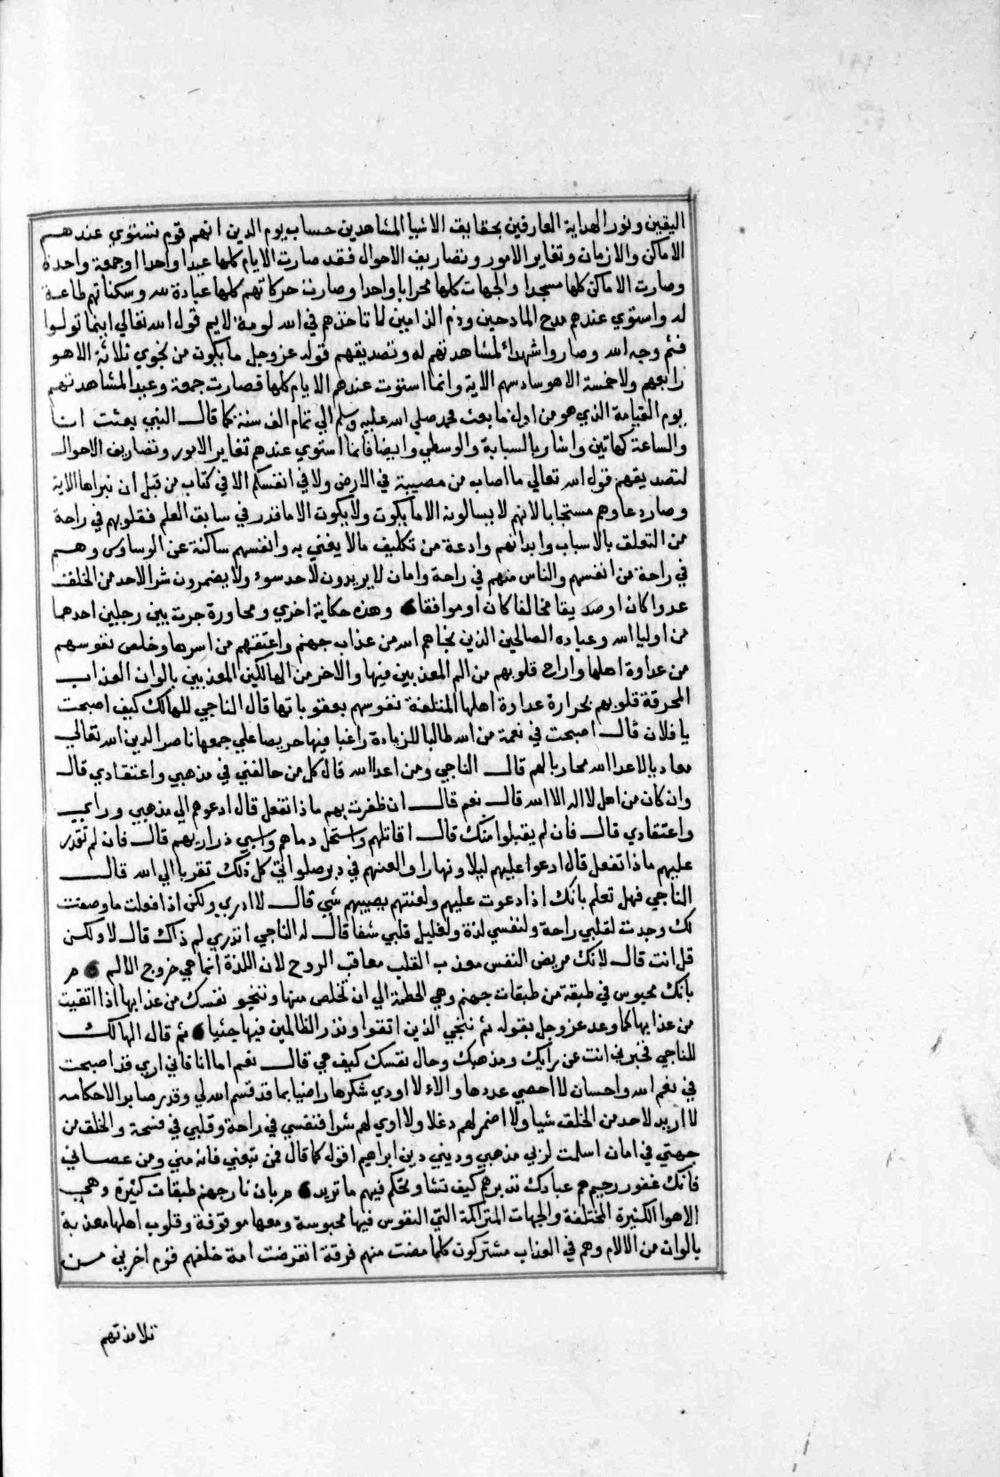 اليقين ونور الهداية العارفين بحقايق الاشيا المشاهدين حساب يوم الدين انهم قوم تستوي عندهم
الاماكن والازمان وتغاير الامور وتصاريف الاحوال فقد صارت الايام كلها عيدا واحدا وجمعة واحدة
وصارت الاماكن كلها مسجدا والجهات كلها محرابا واحدا وصارت حركاتهم كلها عبادة لله وسكناتهم طاعة
له واستوي عندهم مدح المادحين وذم الذامين لا تاخذهم في الله لومة لايم قول الله تعالي اينما تولوا
فثم وجه الله وصاروا شهداء لمشاهدتهم له وتصديقهم قوله عز وجل ما يكون من نجوي ثلاثة الا هو
رابعهم ولا خمسة الا هو سادسهم الاية وانما استوت عندهم الايام كلها فصارت جمعة وعيدا لمشاهدتهم
يوم القيامة الذي هو من اول ما بعث محمد صلي الله عليه وسلم الي تمام الف سنة كما قال النبي بعثت انا
والساعة كهاتين واشار بالسبابة والوسطي وايضا فانما استوي عندهم تغاير الامور وتصاريف الاحوال
لتصديقهم قول الله تعالي ما اصاب من مصيبة في الارض ولا في انفسكم الا في كتاب من قبل ان نبراها الاية
وصار دعاوهم مستجابا لانهم لا يسالون الا ما يكون ولا يكون الا ما قدر في سابق العلم فقلوبهم في راحة
من التعلق بالاسباب وابدانهم وادعة من تكليف ما لا يعني به وانفسهم ساكنة عن الوساوس وهم
في راحة من انفسهم والناس منهم في راحة وامان لا يريدون لاحد سوء ولا يضمرون شرا لاحد من الخلق
عدوا كان او صديقا مخالفا كان او موافقا وهذه حكاية اخري ومحاورة جرت بين رجلين احدهما
من اوليا الله وعباده الصالحين الذين نجاهم الله من عذاب جهنم واعتقهم من اسرها وخلص نفوسهم
من عداوة اهلها واراح قلوبهم من الم المعذبين فيها والاخر من الهالكين المعذبين بالوان العذاب
المحرقة قلوبهم بحرارة عداوة اهلها المتلفة نفوسهم بعقوباتها قال الناجي للهالك كيف اصبحت
يا فلان قال اصبحت في نعمة من الله طالبا للزيادة راغبا فيها حريصا علي جمعها ناصر الدين الله تعالي
معاديا لاعدا الله محاربا لهم قال الناجي ومن اعدا الله قال كل من خالفني في مذهبي واعتقادي قال
وان كان من اهل لا اله الا الله قال نعم قال ان ظفرت بهم ماذا تفعل قال ادعوهم الي مذهبي ورايي
واعتقادي قال فان لم يقبلوا منك قال اقاتلهم واستحل دماهم واسبي ذراريهم قال فان لم تقدر
عليهم ماذا تفعل قال ادعوا عليهم ليلا ونهارا والعنهم في كل ذلك تقربا الي الله قال
الناجي فهل تعلم بانك اذا دعوت عليهم ولعنتهم يصيبهم شي قال لا ادري ولكن اذا فعلت ما وصفت
لك وجدت لقلبي راحة ولنفسي لذة ولغليل قلبي شفا قال له الناجي اتدري لم ذاك قال لا ولكن
قل انت قال لانك مريض النفس معذب القلب معاقب الروح لان اللذة انما هي خروج الالم
بانك محبوس في طبقة من طبقات جهنم وهي الحطمة الي ان تخلص منها وتنجو نفسك من عذابها اذا اتقيت
من عذابها كما وعد عز وجل بقوله ثم ننجي الذين اتقوا ونذر الظالمين فيها جثيا ثم قال الهالك
للناجي فخبرني انت عن رايك ومذهبك وحال نفسك كيف هي قال نعم اما انا فاني اري قد اصبحت
في نعم الله واحسان لا احصي عددها والاء لا اودي شكرها راضيا بما قد قسم الله لي وقدر صابرا لاحكامه
لا اريد لاحد من الخلق شيا ولا اضمر لهم دغلا ولا انوي لهم شرا فنفسي في راحة وقلبي في فسحة والخلق من
جهتي في امان اسلمت لربي مذهبي وديني دين ابراهيم اقول كما قال فمن تبعني فانه مني ومن عصاني
فانك غفور رحيم هم عبادك تدبرهم كيف تشا وتحكم فيهم ما تريد بان نار جهنم طبقات كثيرة وهي
الاهوا الكثيرة المختلفة والجهات المتراكمة التي النفوس فيها محبوسة ومعها موقوفة وقلوب اهلها معذبة
بالوان من الالام وهم في العذاب مشتركون كلما مضت منهم فرقة انقرضت امة خلفهم قوم اخرين من
تلامذتهم